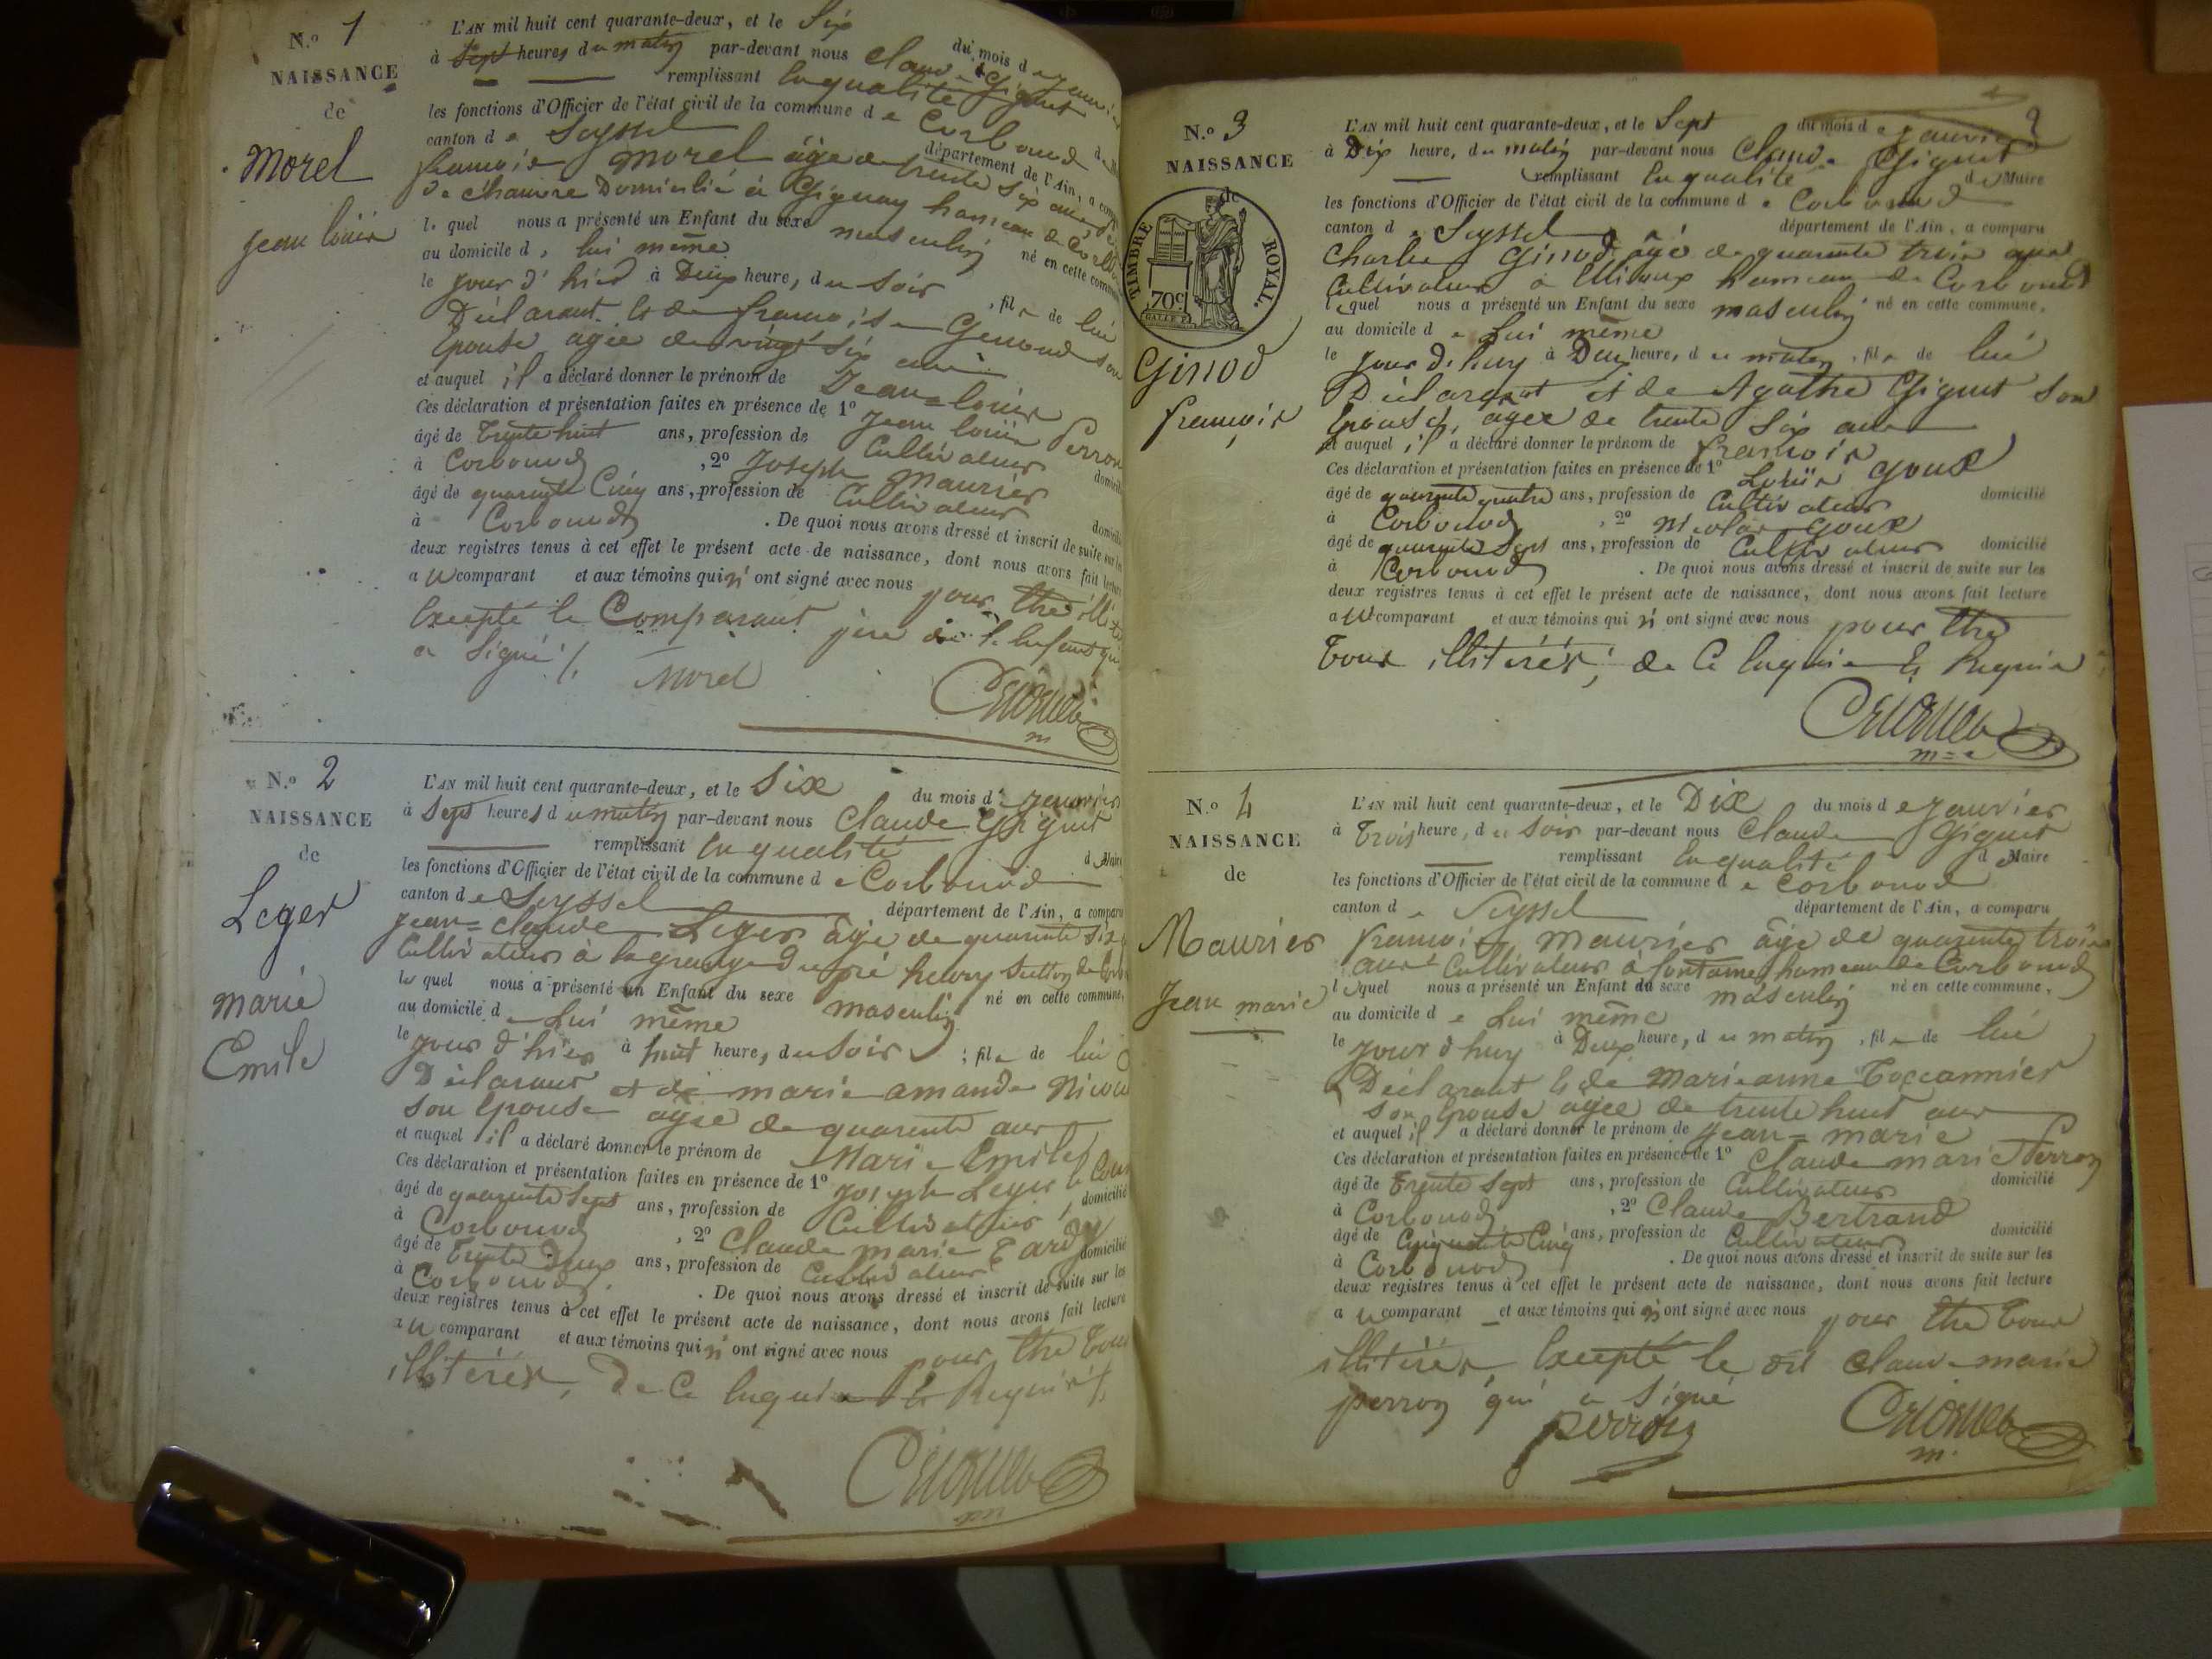 N.º 1
NAISSANCE
de
Morel
jean louis
L'AN mil huit cent quarante-deux, et le Six du mois de janvier
à Sept heures du matin par-devant nous Claude Giguet
remplissant en qualité
les fonctions d'Officier de l'état civil de la commune de Corbonod
canton de Seyssel département de l'Ain, a comp
françois Morel âgé de trente Six ans
de chanvre Domicilié à Gignay hameau de Corbo
lequel nous a présenté un Enfant du sexe masculin né en cette commune
au domicile de lui même
le jour d'hier à Deux heure, du Soir, fils de lui
Déclarant et de françoise Genoud son
épouse agée de vingt six ans
et auquel il a déclaré donner le prénom de Jean=louis
Ces déclaration et présentation faites en présence de 1º Jean louis Perron
âgé de trente huit ans, profession de Cultivateur domicilié
à Corbonod, 2º Joseph Maurier
âgé de quarente Cinq ans, profession de Cultivateur domicilié
à Corbonod. De quoi nous avons dressé et inscrit de suite sur les
deux registres tenus à cet effet le présent acte de naissance, dont nous avons fait lecture
au comparant et aux témoins qui n'ont signé avec nous pour être illité
Excepté le Comparant père de l'enfant qui
a Signé ./.
Morel
N.º 2
NAISSANCE
de
Leger
marie
Emile
L'AN mil huit cent quarante-deux, et le Six du mois de janvier
à Sept heures du matin par-devant nous Claude Giguet
remplissant en qualité de Maire
les fonctions d'Officier de l'état civil de la commune de Corbonod
canton de Seyssel département de l'Ain, a comparu
jean=claude Leger âgé de quarente six
Cultivateur à la grange du pré henry Section de Corb
lequel nous a présenté un Enfant du sexe masculin né en cette commune,
au domicile de Lui même
le jour d'hier à huit heure, du Soir, fils de lui
Déclarant et de marie amande Nicou
son épouse agée de quarente ans
et auquel il a déclaré donner le prénom de Marie Emile
Ces déclaration et présentation faites en présence de 1º Joseph Leger
âgé de quarente Sept ans, profession de Cultivateur, domicilié
à Corbonod, 2º Claude marie Tardy
âgé de trente Deux ans, profession de Cultivateur domicilié
à Corbonod. De quoi nous avons dressé et inscrit de suite sur les
deux registres tenus à cet effet le présent acte de naissance, dont nous avons fait lecture
au comparant et aux témoins qui n'ont signé avec nous pour être tous
illitérés, de Ce Enquis et Requis ./.
N.º 3
NAISSANCE
de
TIMBRE ROYAL.
70c
Ginod
françois
L'AN mil huit cent quarante-deux, et le Sept du mois de janvier
à Dix heure, du matin par-devant nous Claude Giguet
remplissant en qualité de Maire
les fonctions d'Officier de l'état civil de la commune de Corbonod
canton de Seyssel département de l'Ain, a comparu
Charles Ginod âgé de quarente trois ans
Cultivateur à hameau de Corbonod
lequel nous a présenté un Enfant du sexe masculin né en cette commune,
au domicile de Lui même
le jour d'huy à Deux heure, du matin, fils de lui
Déclarant et de Agathe Giguet Son
Epouse, agée de trente Six ans
et auquel il a déclaré donner le prénom de françois
Ces déclaration et présentation faites en présence de 1º Louis goux
âgé de quarente quatre ans, profession de Cultivateur domicilié
à Corbonod, 2º Nicolas goux
âgé de quarente Sept ans, profession de Cultivateur domicilié
à Corbonod. De quoi nous avons dressé et inscrit de suite sur les
deux registres tenus à cet effet le présent acte de naissance, dont nous avons fait lecture
au comparant et aux témoins qui n'ont signé avec nous pour être
tous illitérés, de Ce Enquis et Requis
N.º 4
NAISSANCE
de
Maurier
Jean marie
L'AN mil huit cent quarante-deux, et le Dix du mois de janvier
à trois heure, du Soir par-devant nous Claude Giguet
remplissant en qualité de Maire
les fonctions d'Officier de l'état civil de la commune de Corbonod
canton de Seyssel département de l'Ain, a comparu
françois Maurier âgé de quarente trois
ans Cultivateur à fontaine hameau de Corbonod
lequel nous a présenté un Enfant du sexe masculin né en cette commune,
au domicile de Lui même
le jour d'huy à Deux heure, du matin, fils de lui
Déclarant et de Marieanne
son Epouse agée de trente huit ans
et auquel il a déclaré donner le prénom de jean=marie
Ces déclaration et présentation faites en présence de 1º Claude marie Perron
âgé de trente Sept ans, profession de Cultivateur domicilié
à Corbonod, 2º Claude Bertrand
âgé de Cinquante Cinq ans, profession de Cultivateur domicilié
à Corbonod. De quoi nous avons dressé et inscrit de suite sur les
deux registres tenus à cet effet le présent acte de naissance, dont nous avons fait lecture
au comparant et aux témoins qui n'ont signé avec nous pour être tous
illitérés Excepté le dit Claude marie
perron qui a Signé
perron